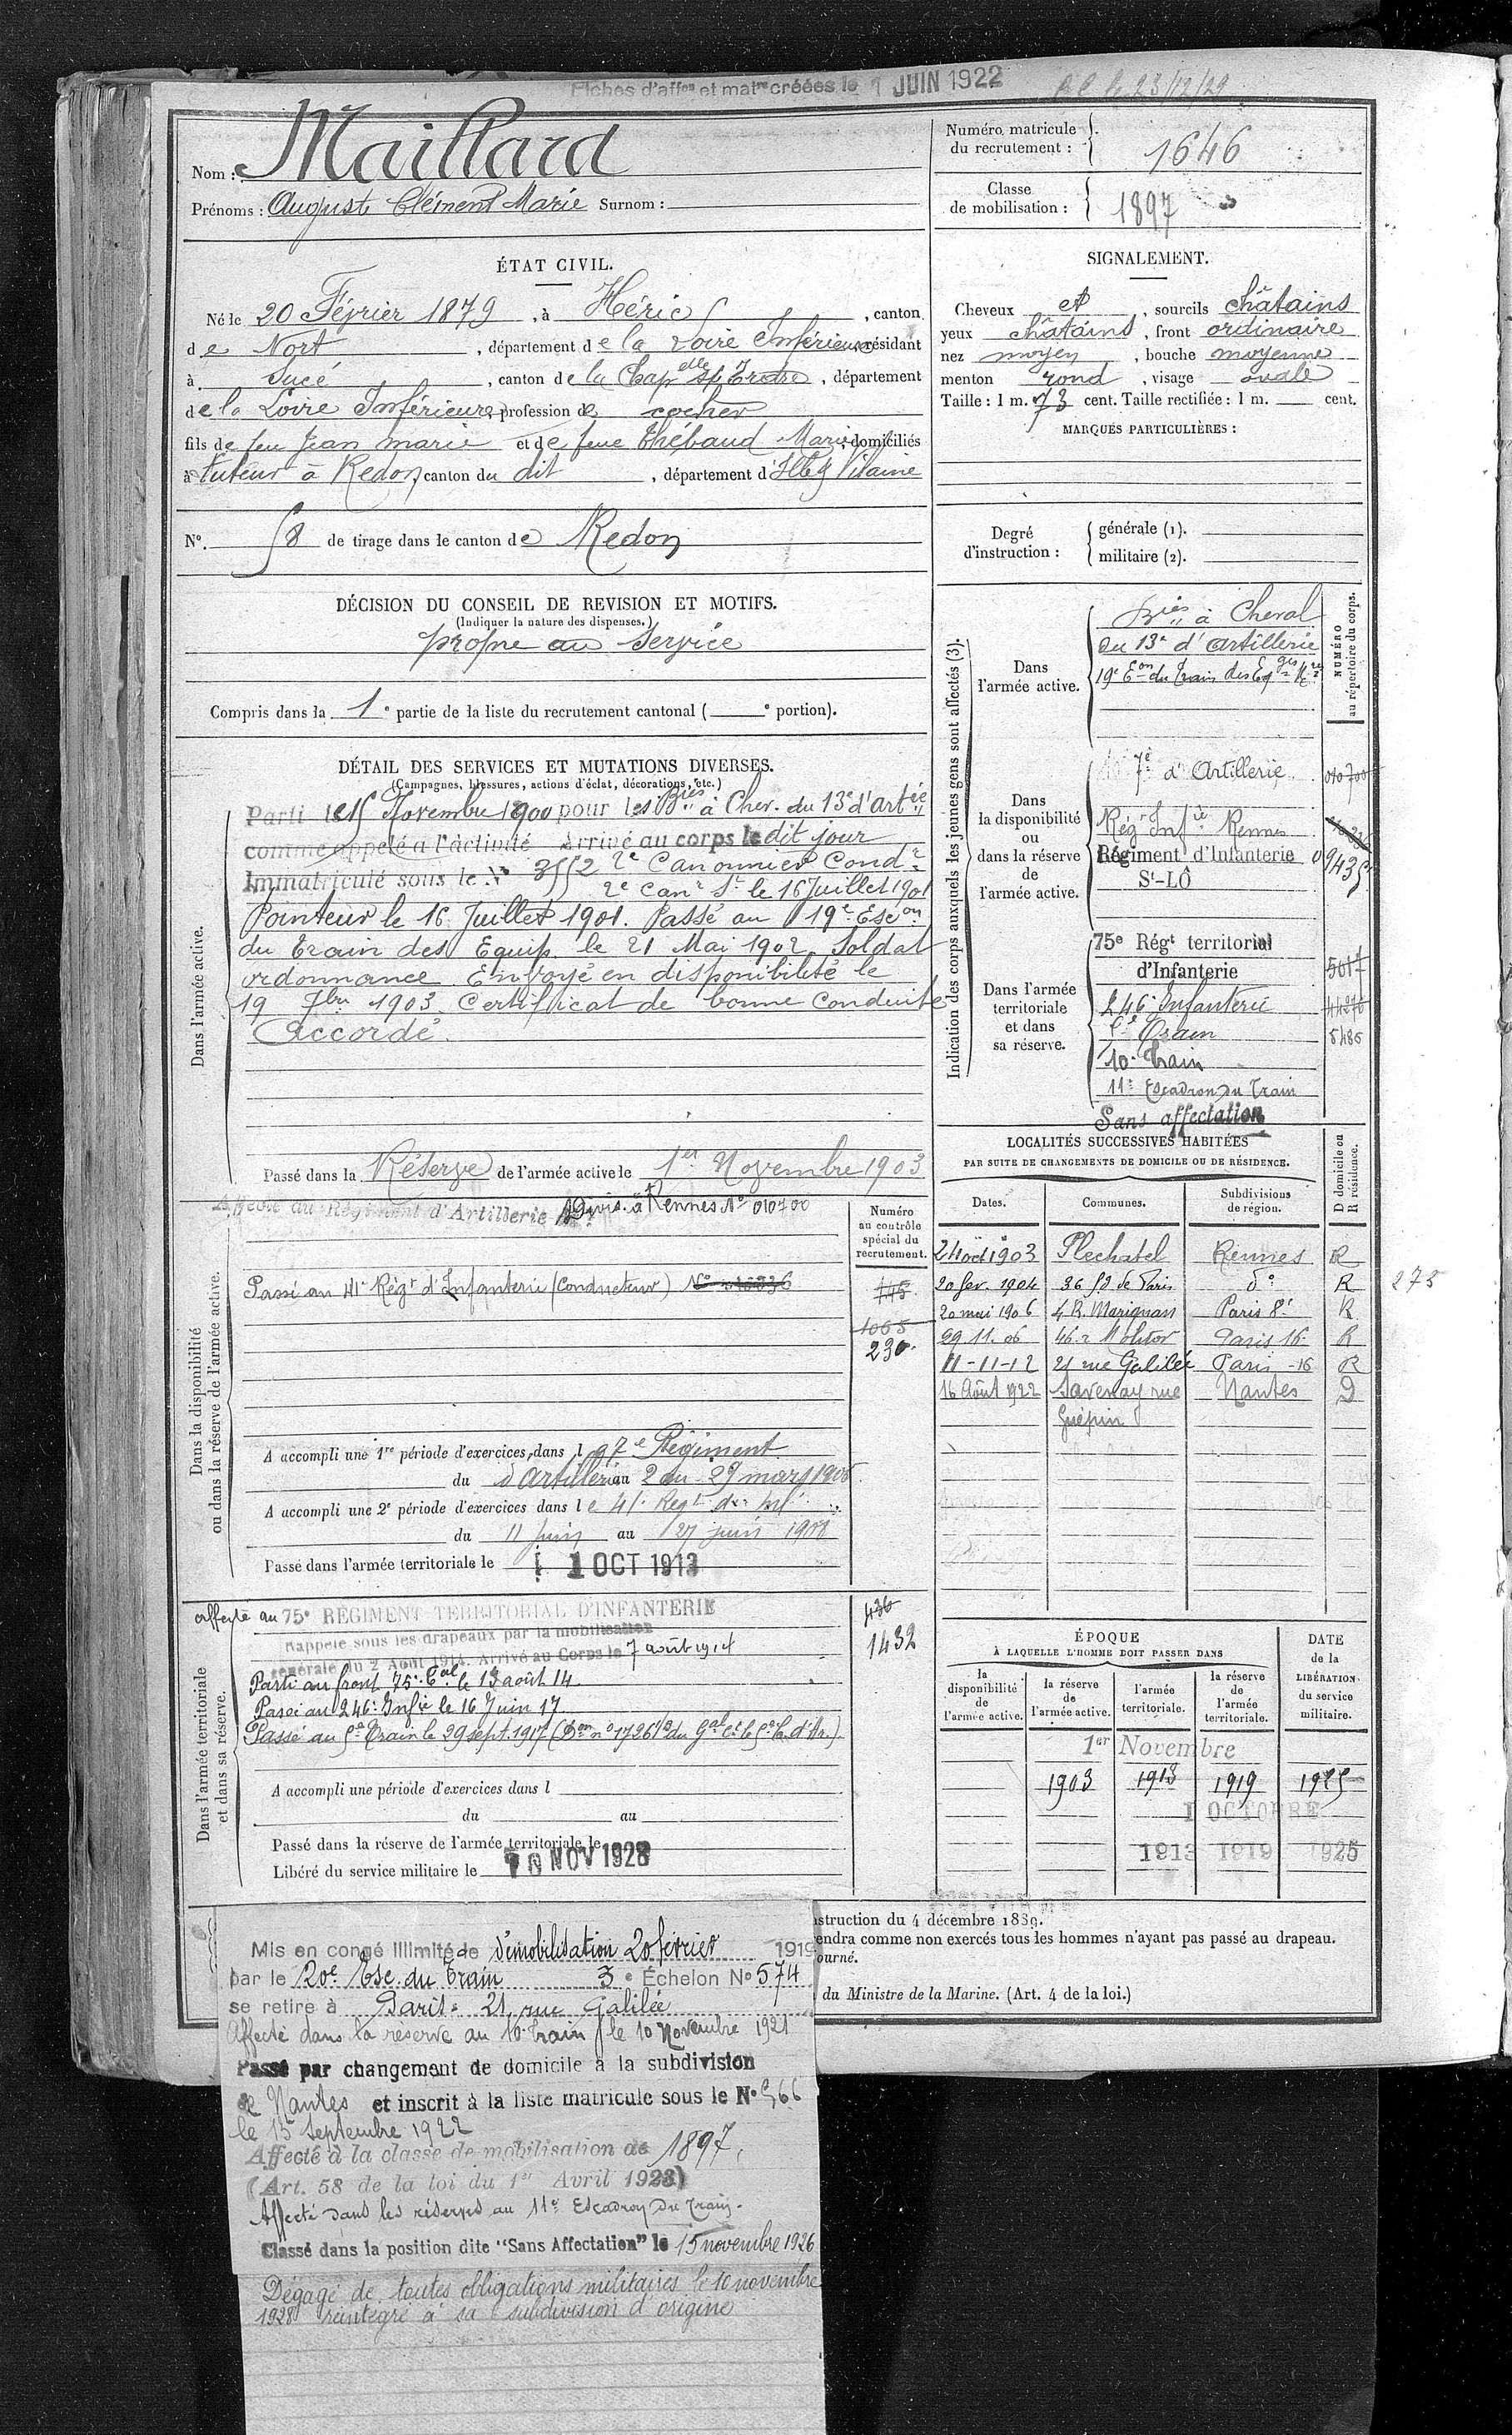 Fiches d'affon et matre créées le 1 JUIN 1922
Nom : Maillard
Prénoms : Auguste Clément Marie Surnom :
Numéro matricule du recrutement : 1646
Classe de mobilisation : 1897
ÉTAT CIVIL.
Né le 20 Février 1879, à Héric, canton
de Nort, département de la Loire Inférieure résidant
à Sucé, canton de la Chapelle s/ Erdre, département
de la Loire Inférieure, profession de cocher
fils de feu Jean marie et de feue Thébaud Marie, domiciliés
à tuteur à Redon, canton du dit, département d'Ille & Vilaine
N°. 58 de tirage dans le canton de Redon
SIGNALEMENT.
Cheveux et, sourcils châtains
yeux châtains, front ordinaire
nez moyen, bouche moyenne
menton rond, visage ovale
Taille : 1 m. 73 cent. Taille rectifiée : 1 m. cent.
MARQUES PARTICULIÈRES :
Degré d'instruction :
générale (1).
militaire (2).
DÉCISION DU CONSEIL DE REVISION ET MOTIFS.
(Indiquer la nature des dispenses.)
propre au service
Compris dans la 1e partie de la liste du recrutement cantonal ( e portion).
DÉTAIL DES SERVICES ET MUTATIONS DIVERSES.
(Campagnes, blessures, actions d'éclat, décorations, etc.)
Dans l'armée active.
Parti le 15 Novembre 1900 pour les Bies à Chev. du 13e d'artie
comme appelé à l'activité Arrivé au corps le dit jour
Immatriculé sous le N° 3552 2e Canonnier Condr
2e Canr St le 16 Juillet 1901
Pointeur le 16 Juillet 1901. Passé au 19e Escon
du Train des Equip. le 21 Mai 1902 Soldat
ordonnance Envoyé en disponibilité le
19 7bre 1903. Certificat de bonne Conduite
Accordé.
Passé dans la Réserve de l'armée active le 1er Novembre 1903
Indication des corps auxquels les jeunes gens sont affectés (3).
NUMÉRO au répertoire du corps.
Dans l'armée active.
Bies à Cheval
du 13e d'artillerie
19e Eon du Train des Eqges Mres
Dans la disponibilité ou dans la réserve de l'armée active.
7e d'Artillerie 010700
Régt Infie Rennes
Régiment d'Infanterie
St-LÔ
Dans l'armée territoriale et dans sa réserve.
75e Régt territorial
d'Infanterie
246e Infanterie
5e Train
10e Train
11e Escadron du Train
Sans affectation
LOCALITÉS SUCCESSIVES HABITÉES
PAR SUITE DE CHANGEMENTS DE DOMICILE OU DE RÉSIDENCE.
D domicile ou R résidence.
Dates. Communes. Subdivisions de région.
24 oct 1903 Plechatel Rennes R
20 fev. 1904 36 fg de Paris do R 273
20 mai 1906 4 R. Marignan Paris 8e R
29.11.06 46 r Molitor Paris 16e R
11-11-12 21 rue Galilée Paris -16 R
16 Août 1922 Savenay rue Nantes D
Guépin
Dans la disponibilité ou dans la réserve de l'armée active.
Numéro au contrôle spécial du recrutement.
Affecté au Régiment d'Artillerie Divis. à Rennes N° 010700
Passé au 41e Régt d'Infanterie (Conducteur)
1065
230.
A accompli une 1re période d'exercices dans l
97e Régiment
du d'artillerie au 2 au 29 mars 1906
A accompli une 2e période d'exercices dans le 41e Regt d'Inf
du 11 juin au 27 juin 1908
Passé dans l'armée territoriale le 1 OCT 1913
Dans l'armée territoriale et dans sa réserve.
affecté au 75e REGIMENT TERRITORIAL D'INFANTERIE
Rappelé sous les drapeaux par la mobilisation
générale du 2 Août 1914. Arrivé au Corps le 7 août 1914
Parti au front 75e Tal le 13 août 14
Passé au 246e Infie le 16 Juin 17
Passé au 5e Train le 29 sept. 1917
436
1432
A accompli une période d'exercices dans l
du au
Passé dans la réserve de l'armée territoriale le
Libéré du service militaire le 10 NOV 1928
ÉPOQUE
À LAQUELLE L'HOMME DOIT PASSER DANS
la disponibilité de l'armée active.
la réserve de l'armée active.
l'armée territoriale.
la réserve de l'armée territoriale.
DATE de la LIBÉRATION du service militaire.
1er Novembre
1903 1913 1919 1925
1 OCTOBRE
1913 1919 1925
struction du 4 décembre 1889.
endra comme non exercés tous les hommes n'ayant pas passé au drapeau.
ourné.
du Ministre de la Marine. (Art. 4 de la loi.)
Mis en congé illimité de démobilisation 20 février 1919
par le 20e Esc. du Train 3e Échelon N° 574
se retire à Paris 21, rue Galilée
Affecté dans la réserve au 10e Train le 10 Novembre 1921
Passé par changement de domicile à la subdivision
de Nantes et inscrit à la liste matricule sous le N° 566
le 15 Septembre 1922
Affecté à la classe de mobilisation de 1897,
(Art. 58 de la loi du 1er Avril 1923)
Affecté dans les réserves au 11e Escadron du Train.
Classé dans la position dite "Sans Affectation" le 15 novembre 1926
Dégagé de toutes obligations militaires le 10 novembre
1928 réintégré à sa subdivision d'origine